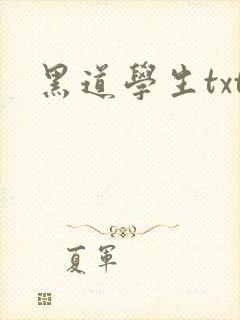 黑道學生txt
夏軍